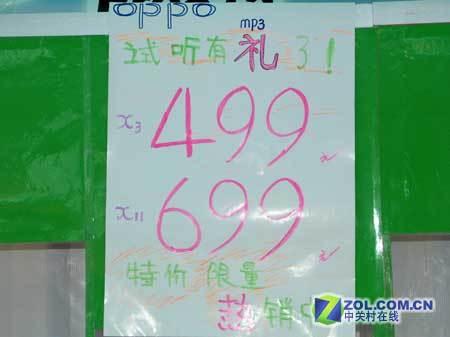 oppo
mp3
试听有礼了!
X3 499元
X11 699元
特价 限量
热销中
ZOL.COM.CN
中关村在线